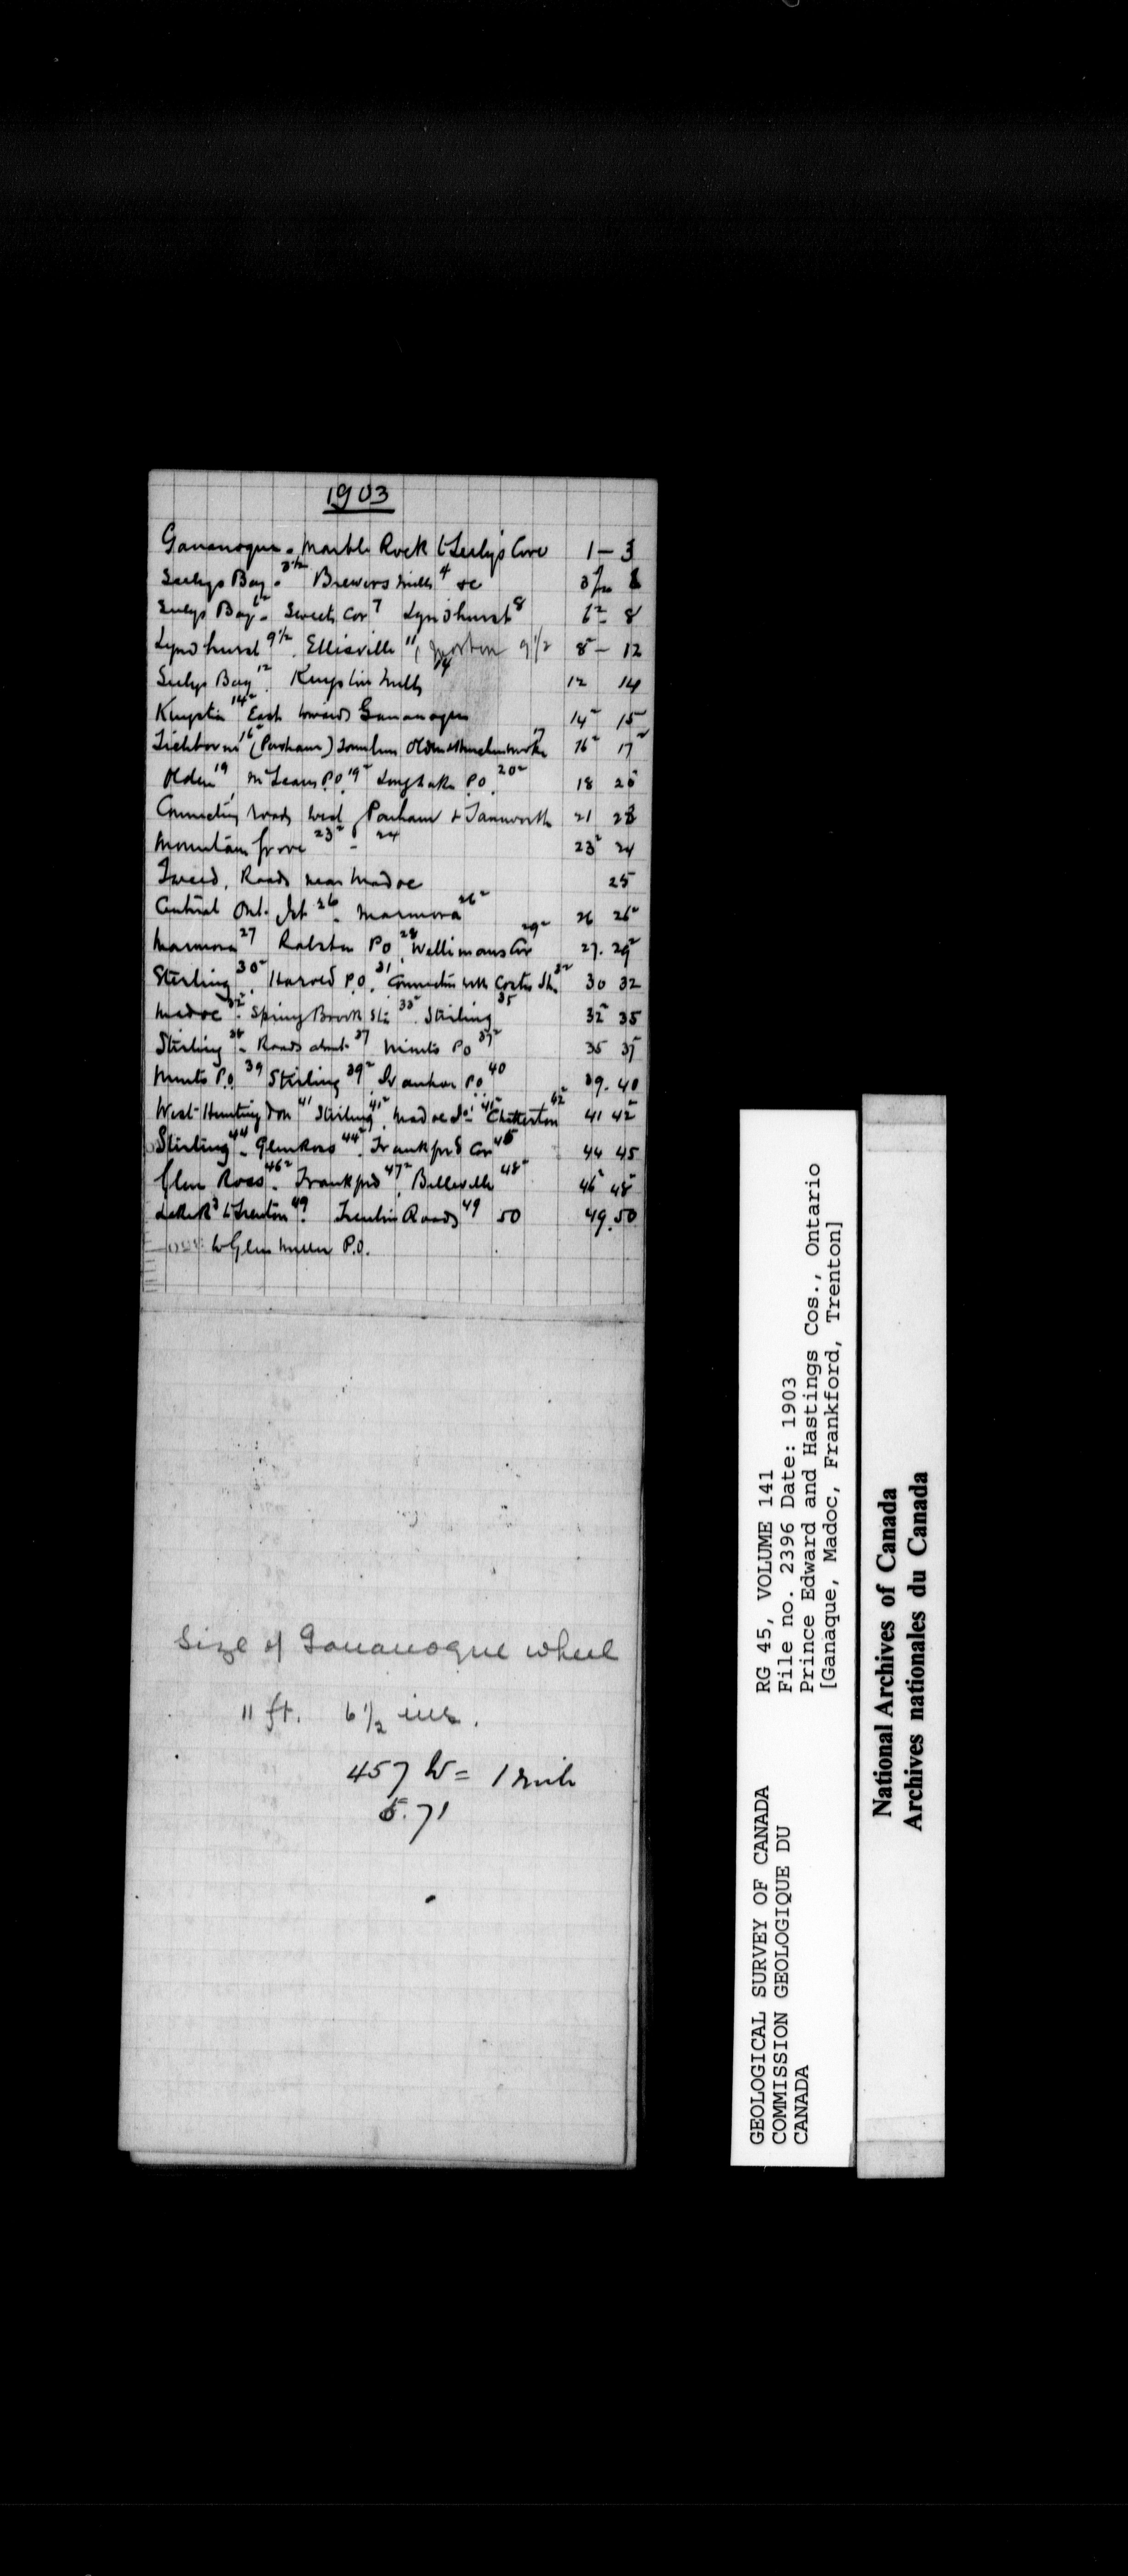 1903
Gananoque - Marble Rock to Seeley's Cove 1 - 3
Seeleys Bay - 3 1/2 Brewers Mills 4 &c
Seeleys Bay - Sweets Cor 7 Lyndhurst 8 8
Lyndhurst 9 1/2 Ellisville 11, Morton 9 1/2 8 - 12
Seeleys Bay 12 Kingston Mills 14 12 14
Kingston 14 East towards Gananoque 14 15
(Parham) 16 17
Olden 19, McLeans P.O. 19 Long Lake P.O. 20 18 20
Connecting roads west Parham & Tamworth 21 23
Mountain Grove 23 - 24 23 24
Tweed, Roads near Madoc 25
Central Ont. Jct 26 - Marmora 26 26 26
Marmora 27 Ralston P.O. 28 Wellmans Cor 29 27. 29
Stirling 30. Harold P.O. 31. Connection with 32 30 32
Madoc 32. Spring Brook Sta 33. Stirling 35 32 35
Stirling - Roads about 37 Minto P.O. 37 35 37
Minto P.O. 39 Stirling 39. P.O. 40 39. 40
West Huntingdon 41 Stirling 41, Madoc Jct 41 Chatterton 42 41 42
Stirling 44 - Glen Ross 44. Frankford Cor 45 44 45
Glen Ross 46. Frankford 47. Belleville 48 46 48
to Trenton 49. Trenton Roads 49 50 49.50
to Glen Miller P.O.
Size of Gananoque wheel
11 ft. 6 1/2 ins.
457 W = 1 mile
5.71
GEOLOGICAL SURVEY OF CANADA
COMMISSION GEOLOGIQUE DU
CANADA
RG 45, VOLUME 141
File no. 2396 Date: 1903
Prince Edward and Hastings Cos., Ontario
[Ganaque, Madoc, Frankford, Trenton]
National Archives of Canada
Archives nationales du Canada